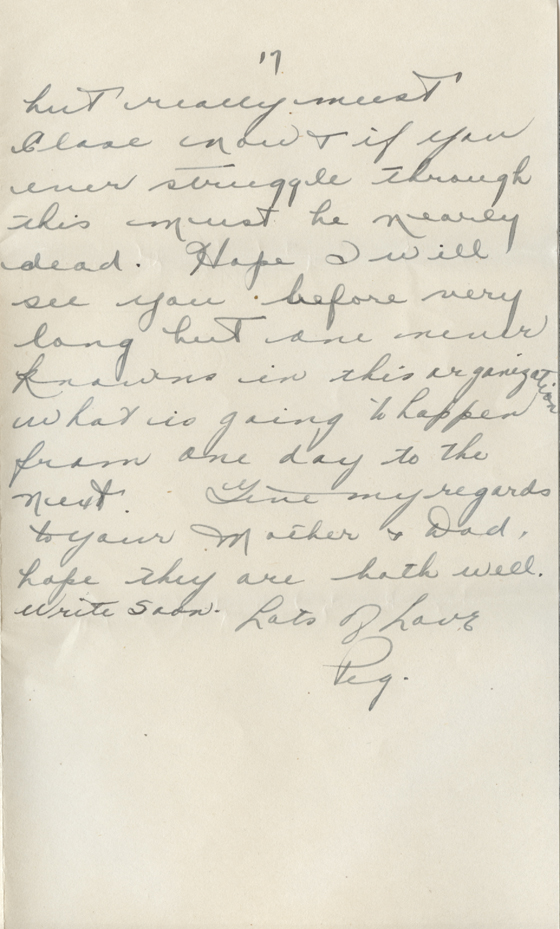 17
but really must
close now & if you
ever struggle through
this must be nearly
dead. Hope I will
see you before very
long but one never
knowns in this organization
what is going to happen
from one day to the
next. Give my regards
to your Mother & Dad,
hope they are both well.
Write soon. Lots of Love
Peg.